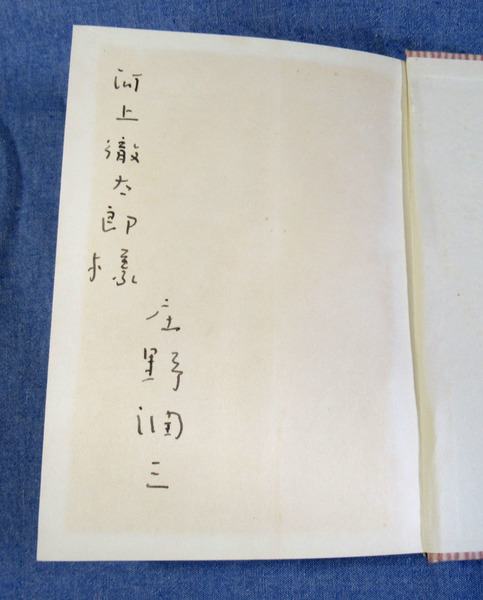 河上徹太郎様
庄野潤三